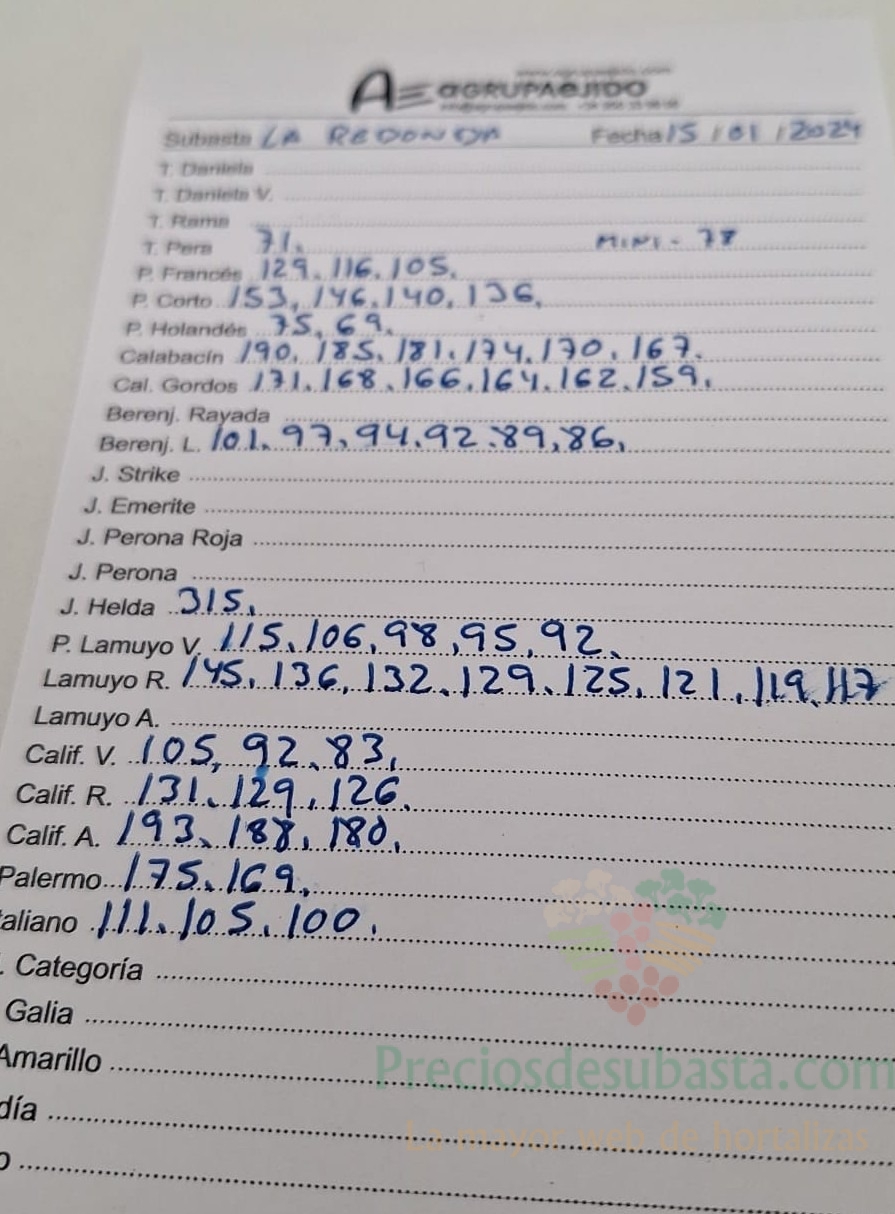 AE AGRUPAEJIDO
Subasta LA REDONDA Fecha 15 / 01 / 2024
T. Daniela
T. Daniela V.
T. Rama
T. Pera 71. MINI - 78
P. Francés 129. 116. 105.
P. Corto 153, 146. 140, 136.
P. Holandés 75, 69.
Calabacín 190, 185. 181. 174. 170. 167.
Cal. Gordos 171. 168. 166. 164. 162. 159.
Berenj. Rayada
Berenj. L. 101. 97, 94. 92. 89, 86,
J. Strike
J. Emerite
J. Perona Roja
J. Perona
J. Helda 315.
P. Lamuyo V. 115. 106, 98, 95, 92.
Lamuyo R. 145. 136, 132. 129. 125. 121. 119. 117
Lamuyo A.
Calif. V. 105, 92. 83,
Calif. R. 131. 129, 126.
Calif. A. 193. 188, 180,
Palermo 175. 169.
aliano 111. 105. 100.
. Categoría
Galia
Amarillo
día
o
Preciosdesubasta.com
La mayor web de hortalizas